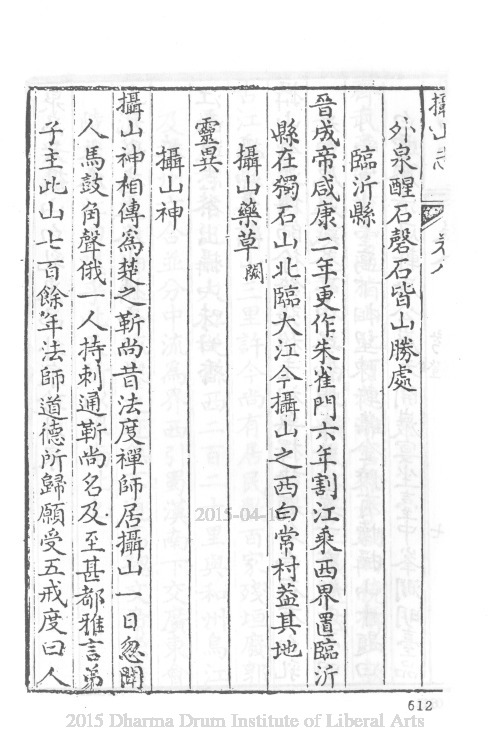 攝山志 卷八
外泉醒石磬石皆山勝處
臨沂縣
晉成帝咸康二年更作朱雀門六年割江乘西界置臨沂
縣在獨石山北臨大江今攝山之西白常村葢其地
攝山藥草闕
靈異
攝山神
攝山神相傳爲楚之靳尚昔法度禪師居攝山一日忽聞
人馬鼓角聲俄一人持刺通靳尚名及至甚都雅言弟
子主此山七百餘年法師道德所歸願受五戒度曰人
2015-04-1
612
2015 Dharma Drum Institute of Liberal Arts